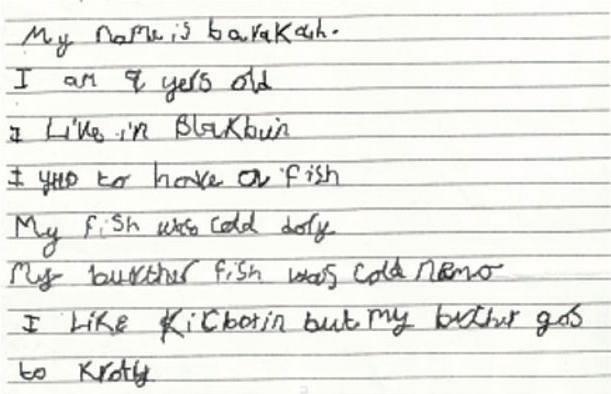 My name is barakah.
I am 9 yers old
I Live in Blakbuin
I yuo to have a fish
My fish was cold doly
My burther fish was cold nemo
I LiKe Kicboxin but my buther gos
to Kroty